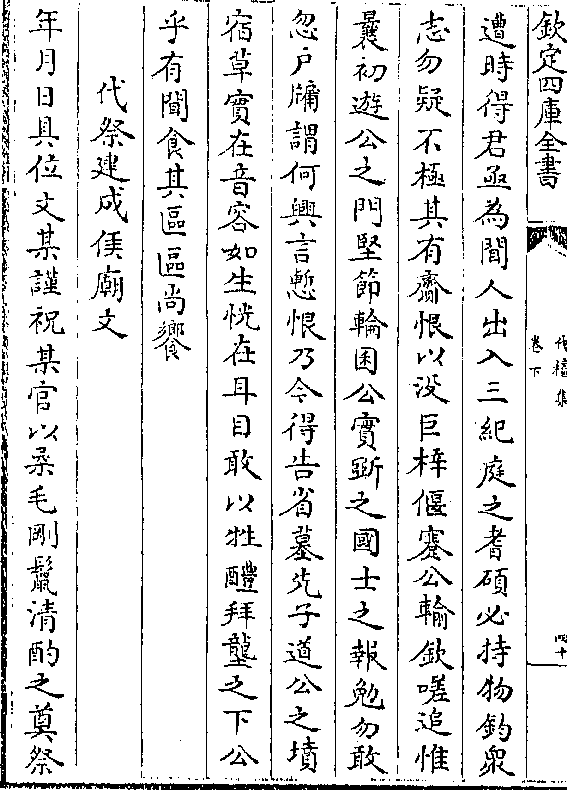 欽定四庫全書
卷下
四十
遭時得君亟為聞人出入三紀庭之耆碩必持物鈞衆
志勿疑不極其有齎恨以没巨梓偃蹇公輸欽嗟追惟
曩初遊公之門堅節輪囷公實斲之國士之報勉勿敢
忽户牖謂何興言慙恨乃今得告省墓先子道公之墳
宿草實在音容如生恍在耳目敢以牲醴拜壟之下公
乎有聞食其區區尚饗
代祭建成侯廟文
年月日具位丈某謹祝某官以柔毛剛鬛清酌之奠祭